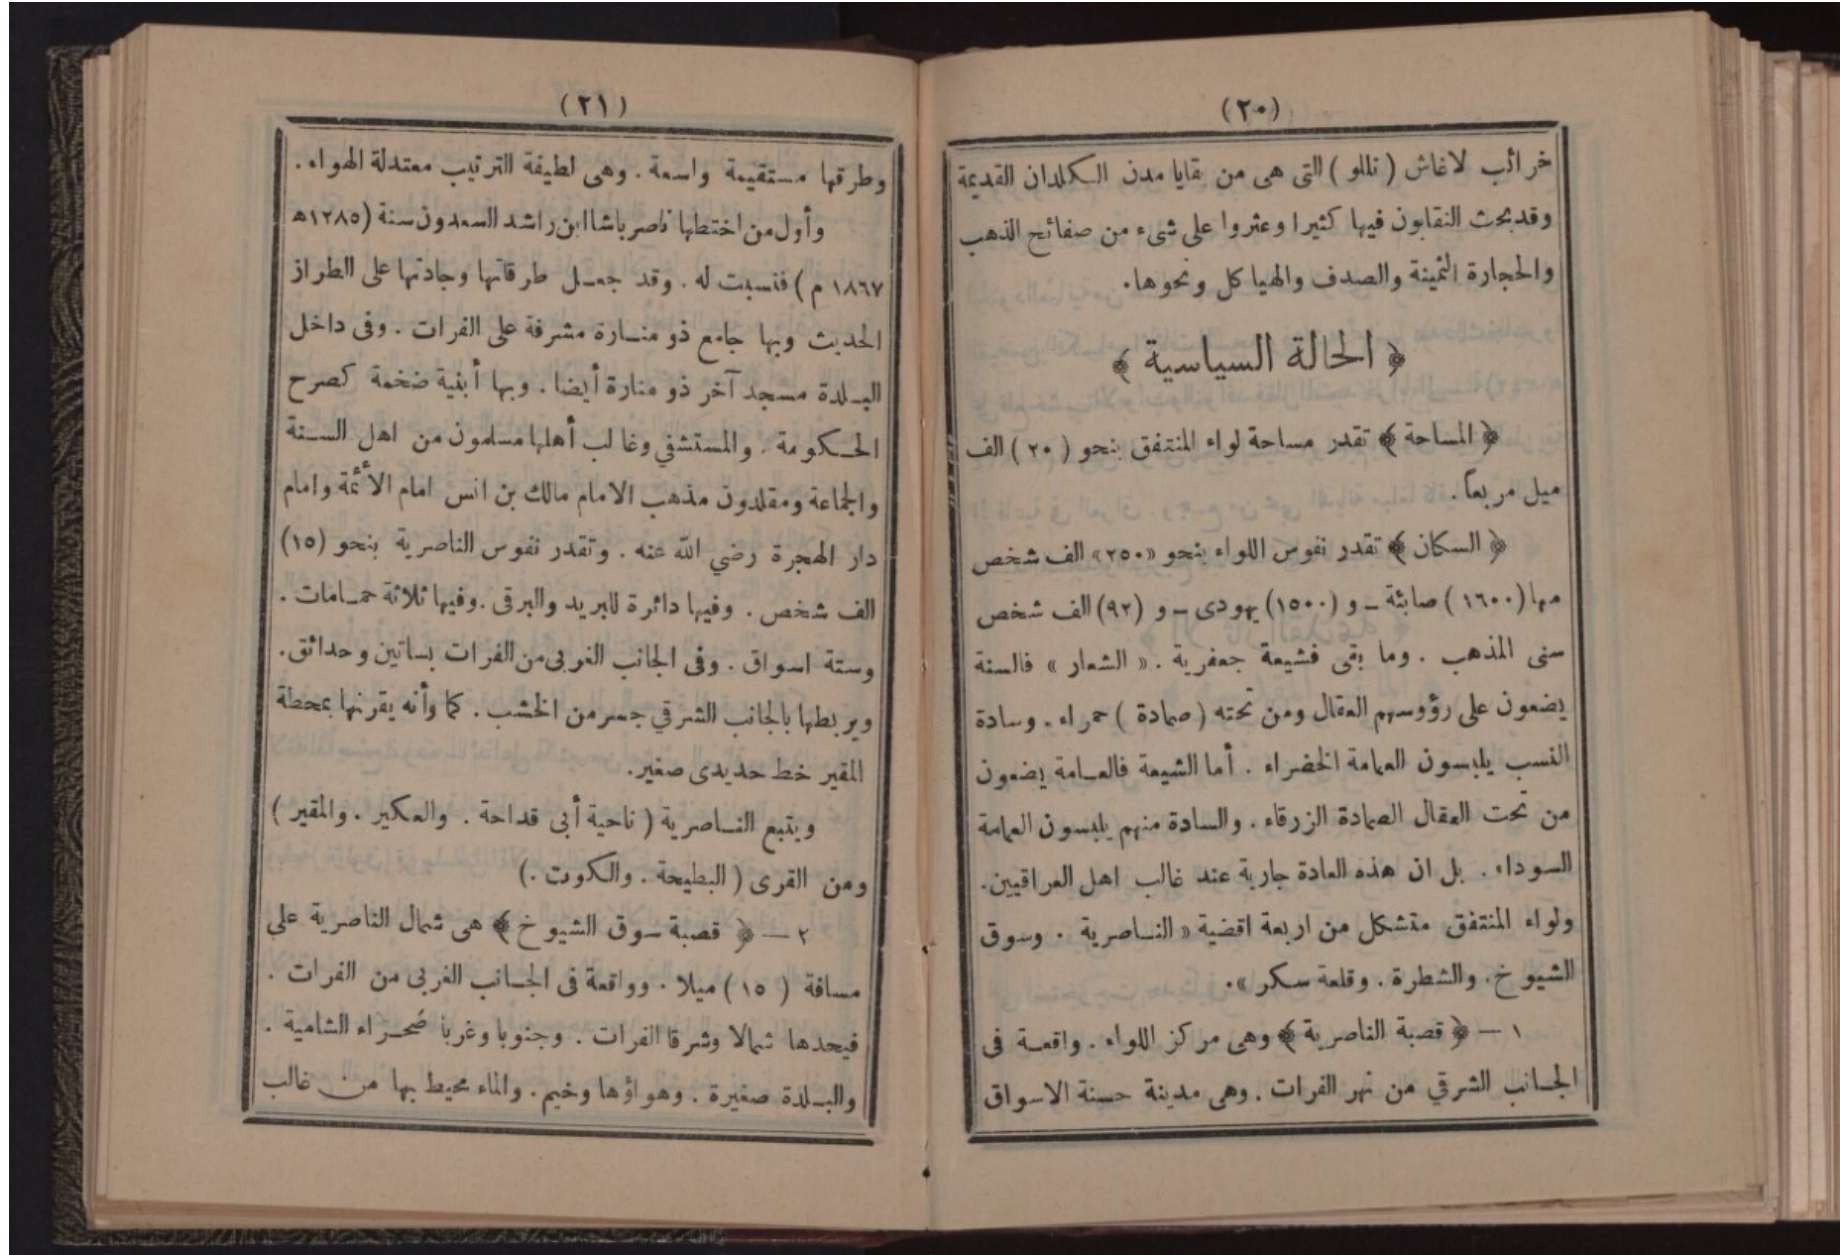 (٢٠)
خرائب لاغاش (تللو) التى هى من بقايا مدن الكلدان القديمة
وقد بحث النقابون فيها كثيرا وعثروا على شىء من صفائح الذهب
والحجارة الثمينة والصدف والهياكل ونحوها.
﴿ الحالة السياسية ﴾
﴿ المساحة ﴾ تقدر مساحة لواء المنتفق بنحو (٢٠) الف
ميل مربعاً.
﴿ السكان ﴾ تقدر نفوس اللواء بنحو «٢٥٠» الف شخص
مها (١٦٠٠) صابئة ـ و (١٥٠٠) يهودى ـ و (٩٢) الف شخص
سنى المذهب . وما بقى فشيعة جعفرية . « الشعار » فالسنة
يضعون على رؤوسهم العقال ومن تحته (صمادة) حمراء . وسادة
النسب يلبسون العمامة الخضراء . أما الشيعة فالعامة يضعون
من تحت العقال الصمادة الزرقاء . والسادة منهم يلبسون العمامة
السوداء . بل ان هذه العادة جارية عند غالب اهل العراقيين.
ولواء المنتفق متشكل من اربعة اقضية « الناصرية . وسوق
الشيوخ . والشطرة . وقلعة سكر ».
١ — ﴿ قصبة الناصرية ﴾ وهى مركز اللواء . واقعة فى
الجانب الشرقي من نهر الفرات . وهى مدينة حسنة الاسواق
(٢١)
وطرقها مستقيمة واسعة . وهى لطيفة الترتيب معتدلة الهواء .
وأول من اختطها ناصر باشا ابن راشد السعدون سنة (١٢٨٥ﻫ
١٨٦٧ م) فنسبت له . وقد جعل طرقاتها وجادتها على الطراز
الحديث وبها جامع ذو منارة مشرفة على الفرات . وفى داخل
البلدة مسجد آخر ذو منارة أيضا . وبها أبنية ضخمة كصرح
الحكومة . والمستشفي وغالب أهلها مسلمون من اهل السنة
والجماعة ومقلدون مذهب الامام مالك بن انس امام الأئمة وامام
دار الهجرة رضي الله عنه . وتقدر نفوس الناصرية بنحو (١٥)
الف شخص . وفيها دائرة للبريد والبرقى . وفيها ثلاثة حمامات .
وستة اسواق . وفى الجانب الغربى من الفرات بساتين وحدائق.
ويربطها بالجانب الشرقي جسر من الخشب . كما وأنه يقرنها بمحطة
المقير خط حديدى صغير.
ويتبع الناصرية (ناحية أبى قداحة . والعكير . والمقير)
ومن القرى (البطيحة . والكوت .)
٢ — ﴿ قصبة سوق الشيوخ ﴾ هى شمال الناصرية على
مسافة (١٥) ميلا . وواقعة فى الجانب الغربى من الفرات .
فيحدها شمالا وشرقا الفرات . وجنوبا وغربا صحراء الشامية .
والبلدة صغيرة . وهواؤها وخيم . والماء محيط بها من غالب